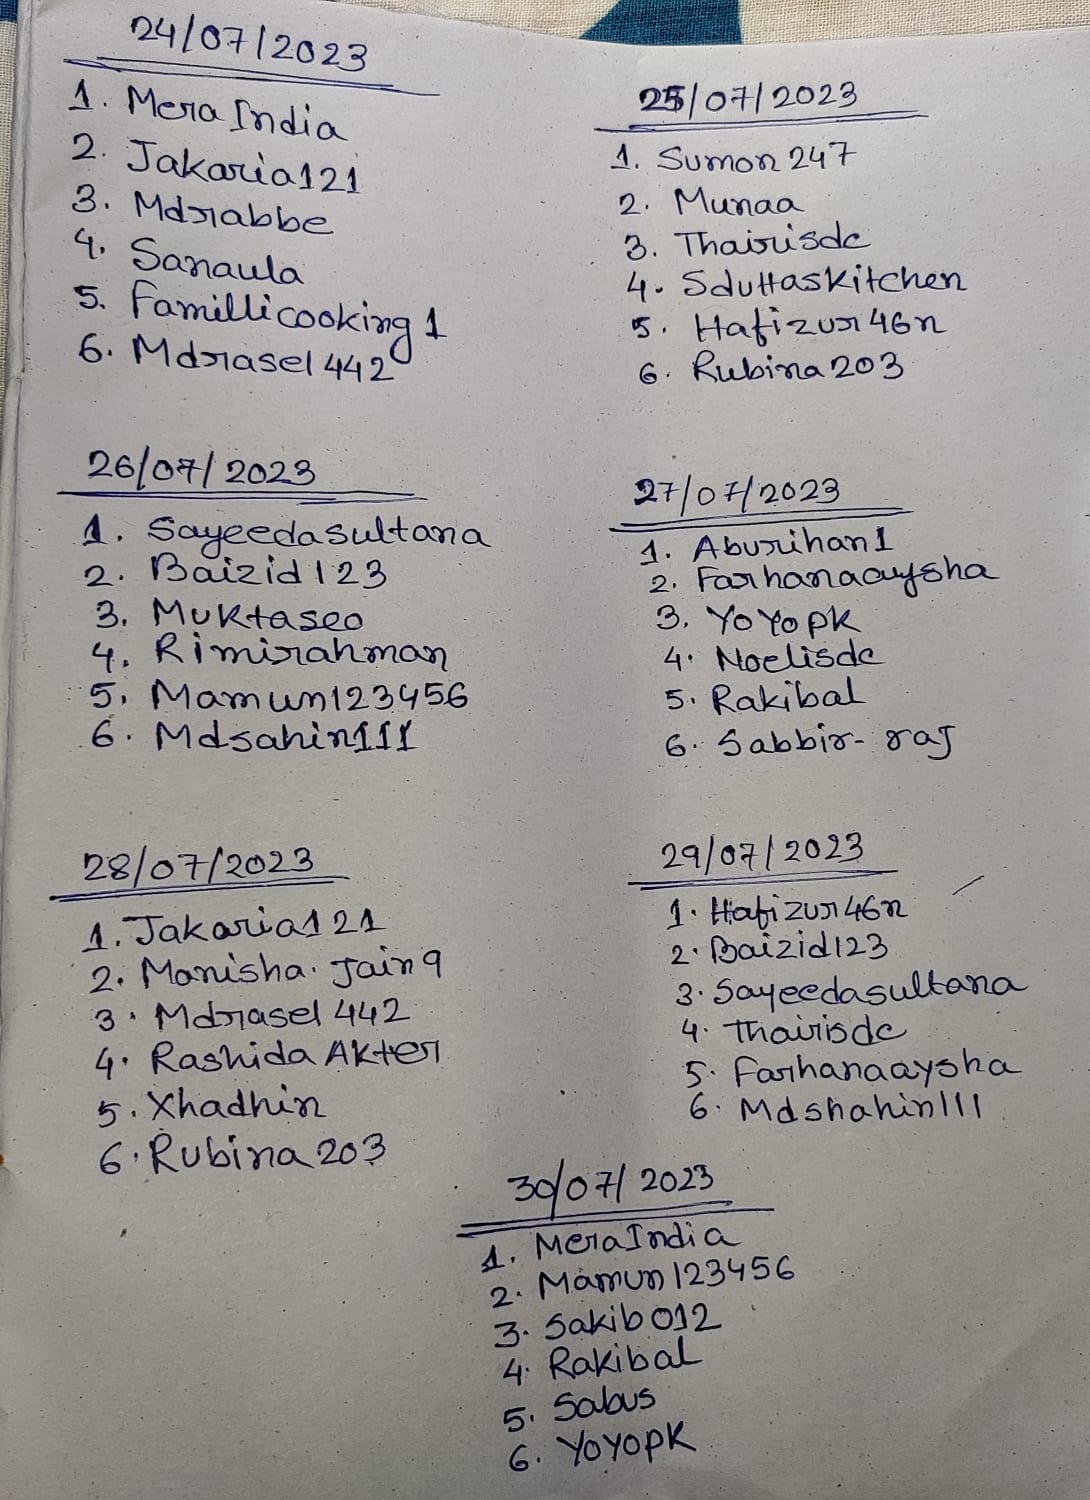 24/07/2023
1. Mera India
2. Jakaria121
3. Mdrabbe
4. Sanaula
5. Famillicooking1
6. Mdrasel442
25/07/2023
1. Sumon247
2. Munaa
3. Thairisdc
4. Sduttaskitchen
5. Hafizur46n
6. Rubina203
26/07/2023
1. Sayeedasultana
2. Baizid123
3. Muktaseo
4. Rimirahman
5. Mamun123456
6. Mdsahin111
27/07/2023
1. Aburihan1
2. Farhanaaysha
3. YoYopk
4. Noelisdc
5. Rakibal
6. Sabbir-raj
28/07/2023
1. Jakaria121
2. Manisha.Jain9
3. Mdrasel442
4. Rashida Akter
5. Xhadhin
6. Rubina203
29/07/2023
1. Hafizur46n
2. Baizid123
3. Sayeedasultana
4. Thairisdc
5. Farhanaaysha
6. Mdshahin111
30/07/2023
1. MeraIndia
2. Mamun123456
3. Sakib012
4. Rakibal
5. Sabus
6. YoYoPK